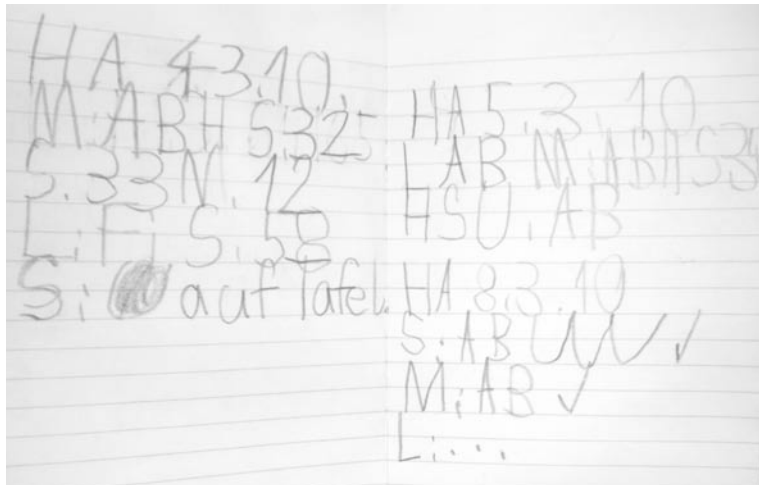 HA 4.3.10.
M:ABH S.32 5
S.33 N.12
L:Fi S.58
S: auf Tafel.
HA 5.3.10
L AB M:ABH S34
HSU:AB
HA 8.3.10
S:AB ✓
M:AB ✓
L:...